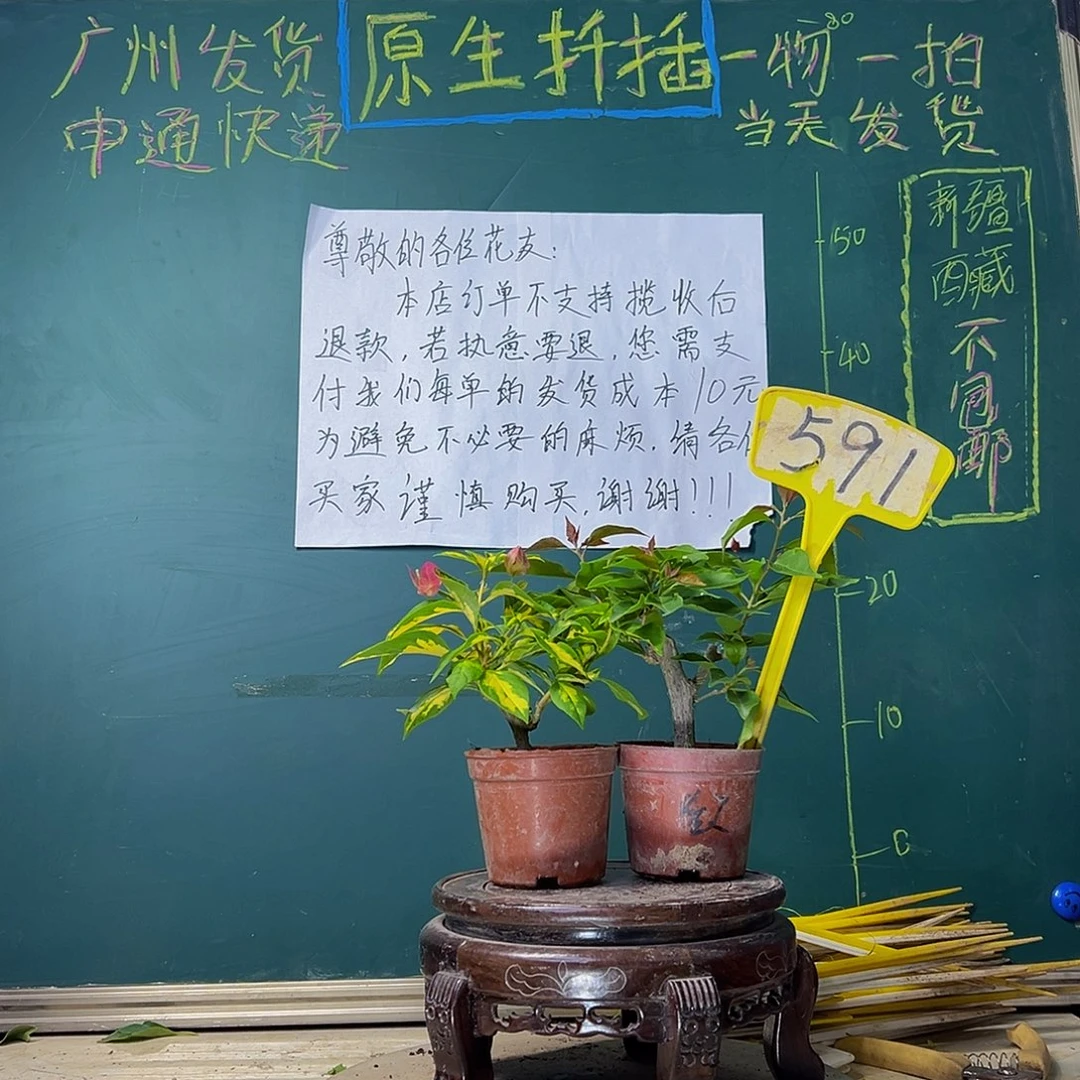 广州发货
申通快递
原生扦插
一物一拍
80
当天发货
尊敬的各位花友:
本店订单不支持揽收后
退款,若执意要退,您需支
付我们每单的发货成本10元
为避免不必要的麻烦.请各位
买家谨慎购买,谢谢!!!
新疆
西藏
不
包
邮
50
40
591
20
10
0